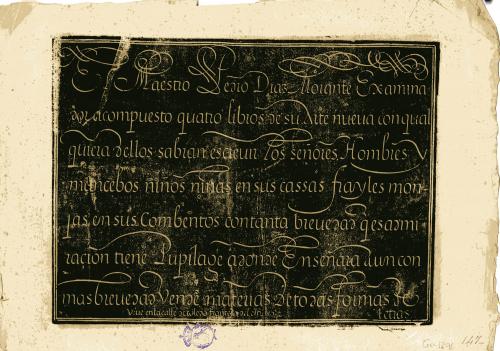 El Maestro Pedro Diaz Morante Examina
dor a compuesto quatro libros de su Arte nueva con qual
quiera dellos sabran escreuir los señores, Hombres, y
mancebos niños niñas en sus cassas frayles mon-
jas en sus Combentos con tanta breuedad q es admi
racion tiene Pupilage adonde Enseñara aun con
mas breuedad Vende materias de todas formas de
letras
Viue en la calle de toledo
147